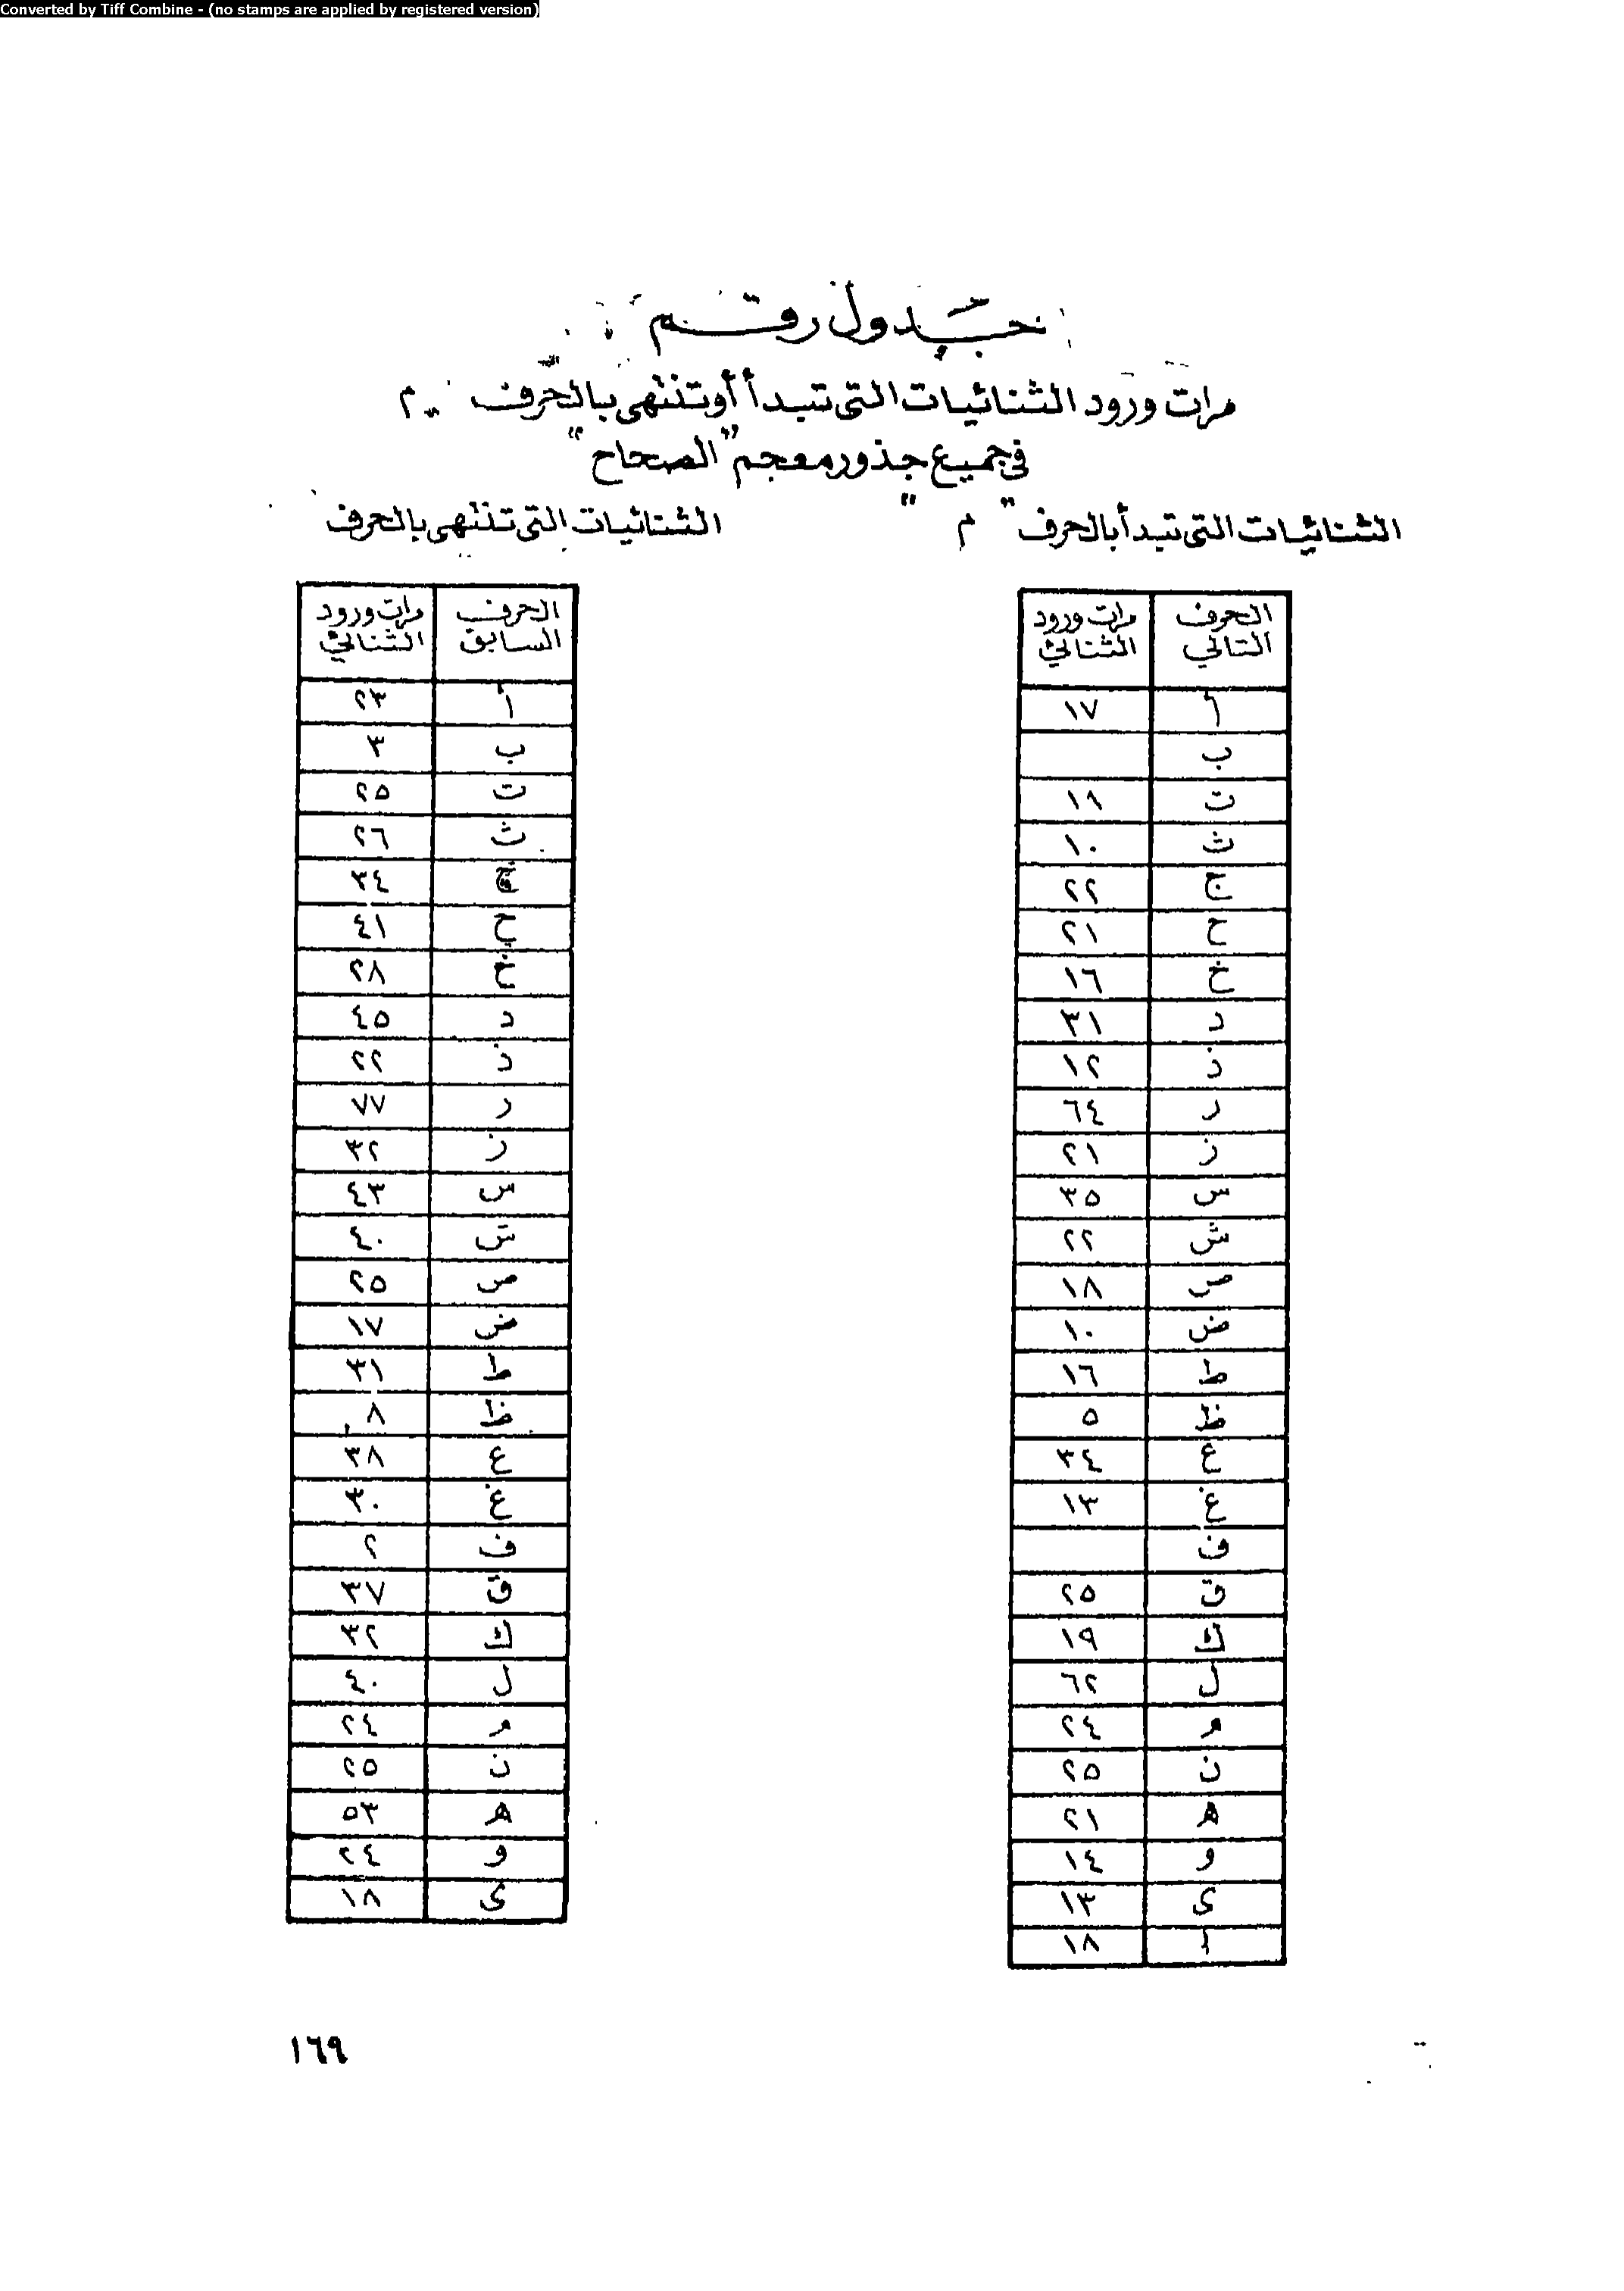 Converted by Tiff Combine - (no stamps are applied by registered version)
جدول رقم
مرات ورود الثنائيات التى تبدأ أو تنتهى بالحرف م
فى جميع جذور معجم "الصحاح"
الثنائيات التى تبدأ بالحرف " م "
الحرف التالي	مرات ورود الثنائي
أ	١٧
ب
ت	١٨
ث	١٠
ج	٢٢
ح	٢١
خ	١٦
د	٣١
ذ	١٢
ر	٦٤
ز	٢١
س	٣٥
ش	٢٢
ص	١٨
ض	١٠
ط	١٦
ظ	٥
ع	٣٤
غ	١٣
ف
ق	٢٥
ك	١٩
ل	٦٢
م	٢٤
ن	٢٥
هـ	٢١
و	١٤
ى	١٣
١٨
الثنائيات التى تنتهى بالحرف
الحرف السابق	مرات ورود الثنائي
أ	٢٣
ب	٣
ت	٢٥
ث	٢٦
ج	٣٤
ح	٤١
خ	٢٨
د	٤٥
ذ	٢٢
ر	٧٧
ز	٣٢
س	٤٣
ش	٤٠
ص	٢٥
ض	١٧
ط	٣١
ظ	٨
ع	٣٨
غ	٣٠
ف	٢
ق	٣٧
ك	٣٢
ل	٤٠
م	٢٤
ن	٢٥
هـ	٥٣
و	٢٤
ى	١٨
١٦٩